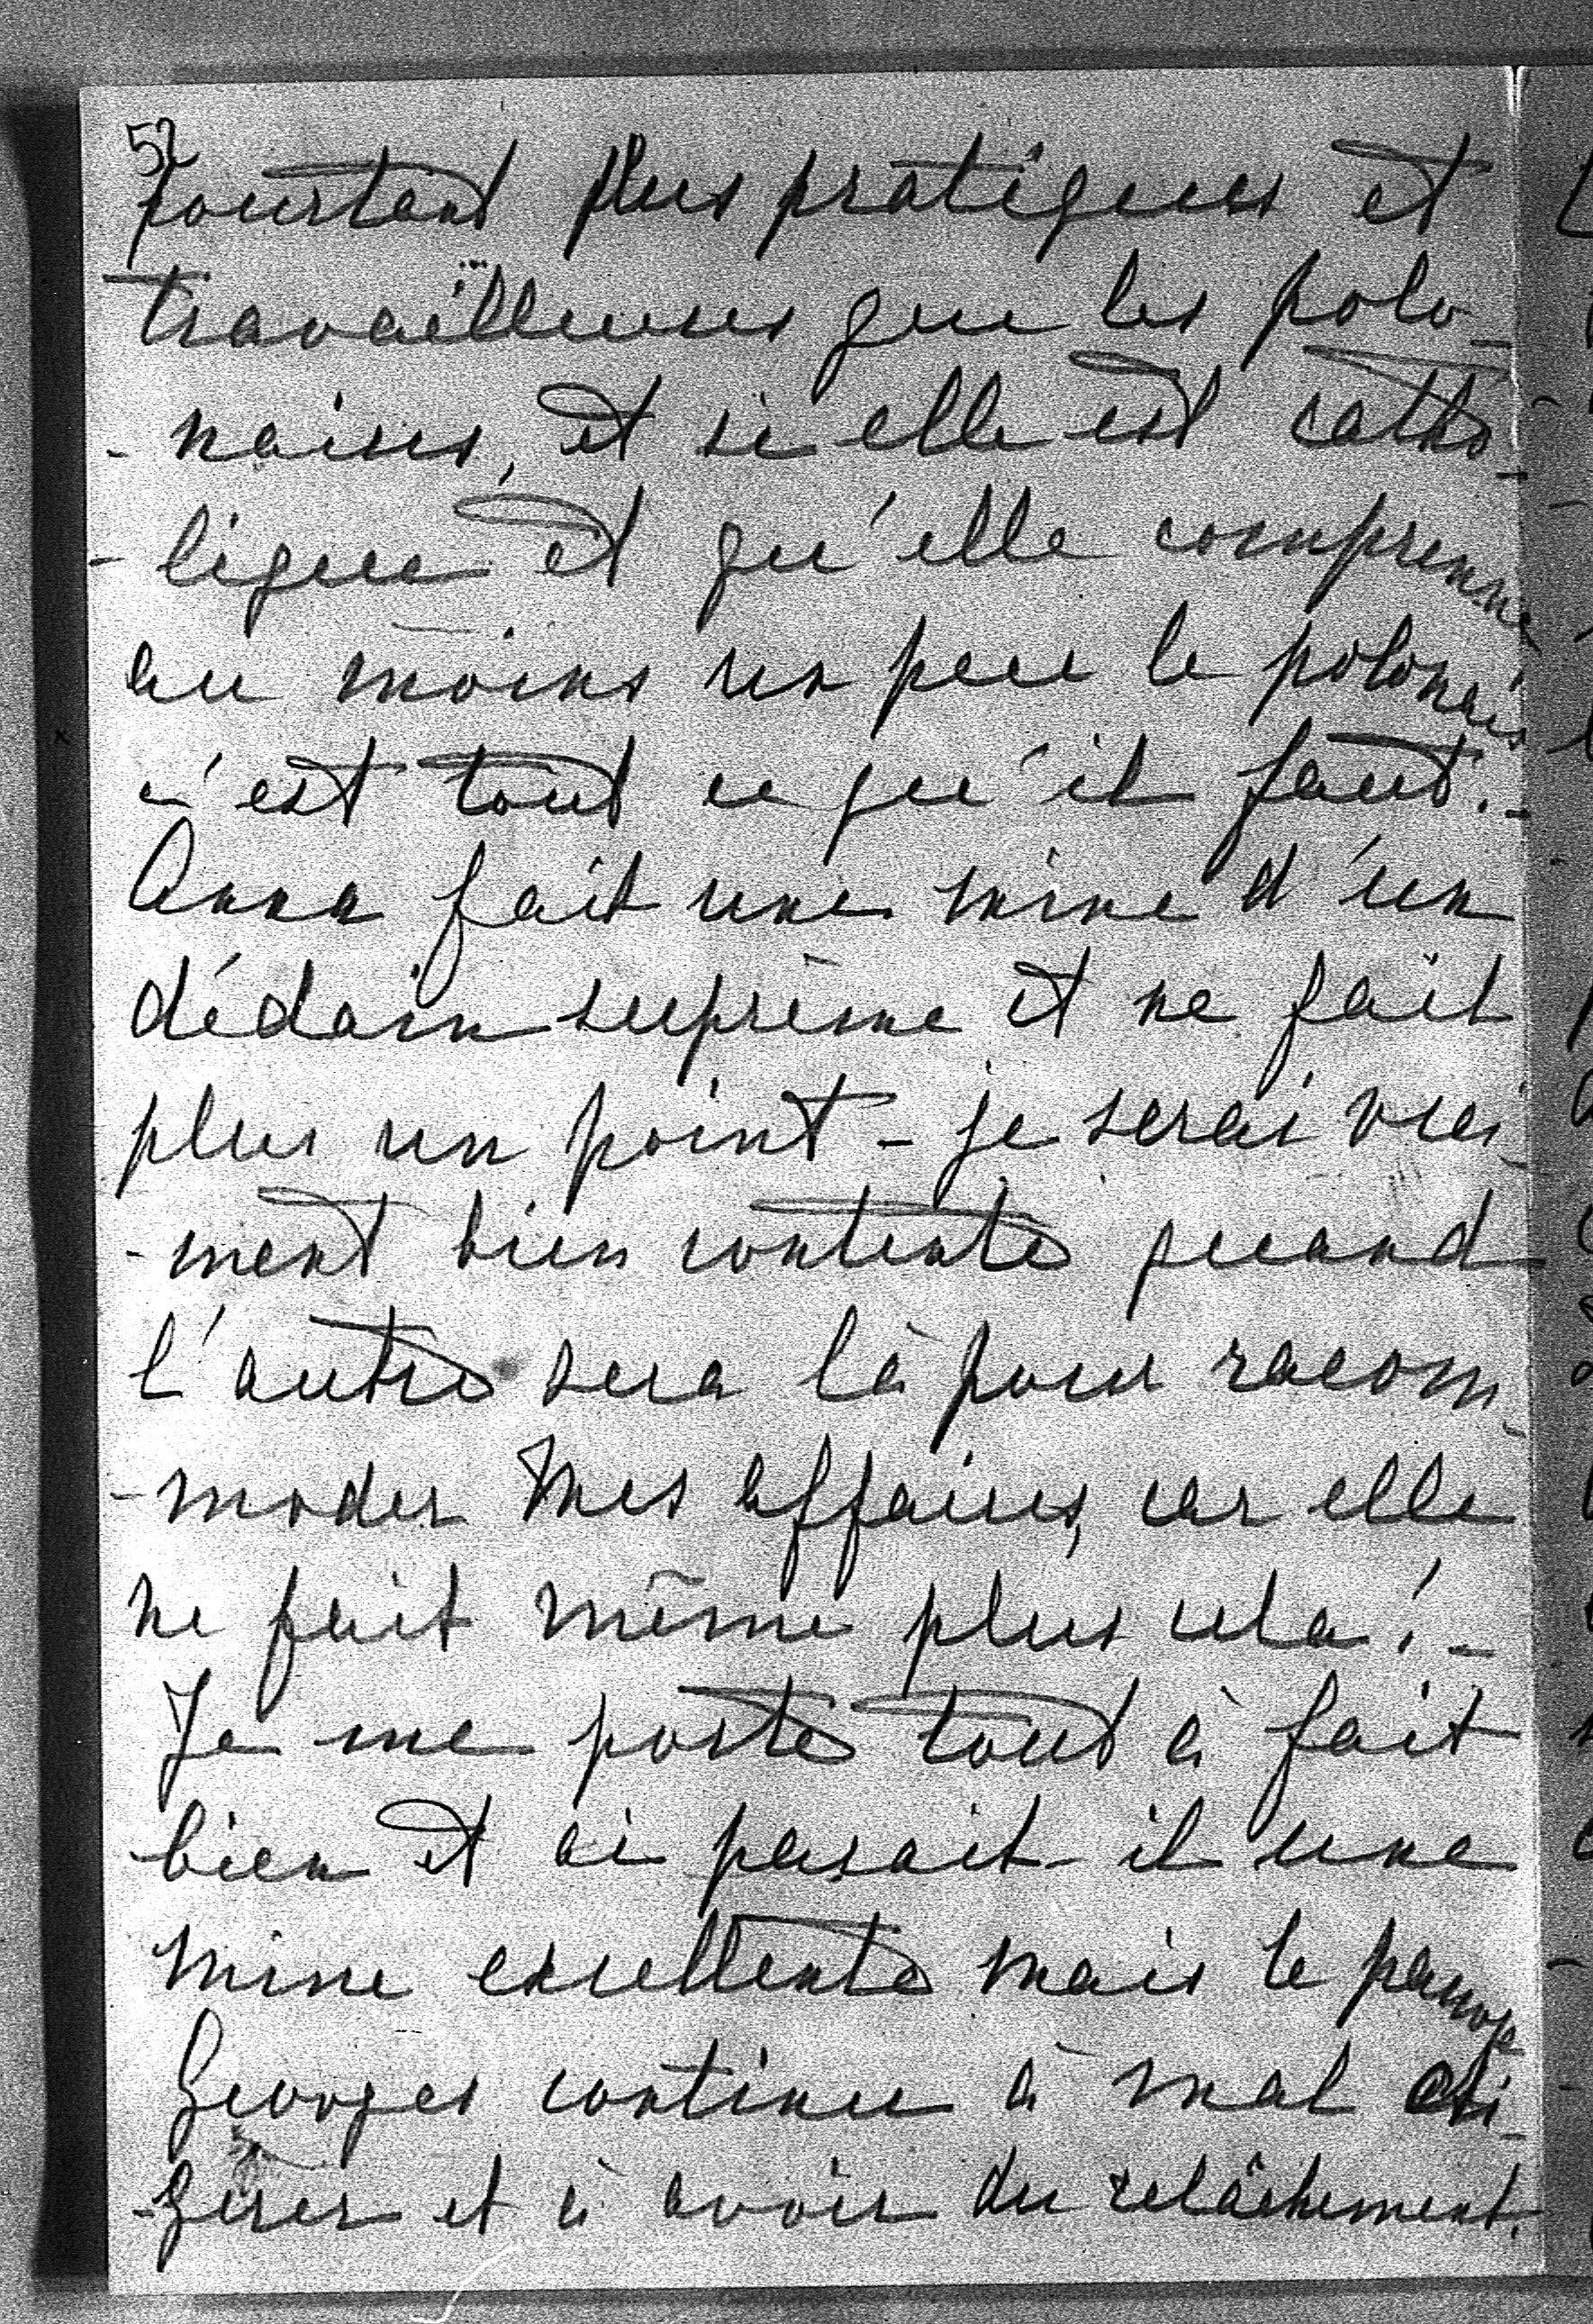 52
pourtant plus pratiques et
travailleuses que les polo-
- naises, et si elle est catho-
- lique et qu'elle comprenne
au moins un peu le polonais
c'est tout ce qu'il faut. -
Anna fait une mine d'un
dédain suprême et ne fait
plus un point - je serai vrai-
- ment bien contente quand
l'autre sera là pour racom-
- moder mes affaires, car elle
ne fait même plus cela! -
Je me porte tout à fait
bien et ai parait-il une
mine excellente mais le pauvre
Georges continue à mal di-
- gérer et à avoir du relâchement.